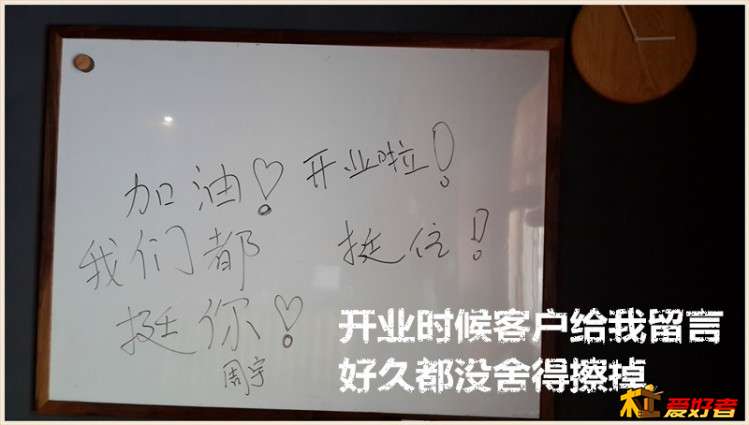 加油! 开业啦!
我们都 挺住!
挺你!
周宇
开业时候客户给我留言
好久都没舍得擦掉
木工爱好者